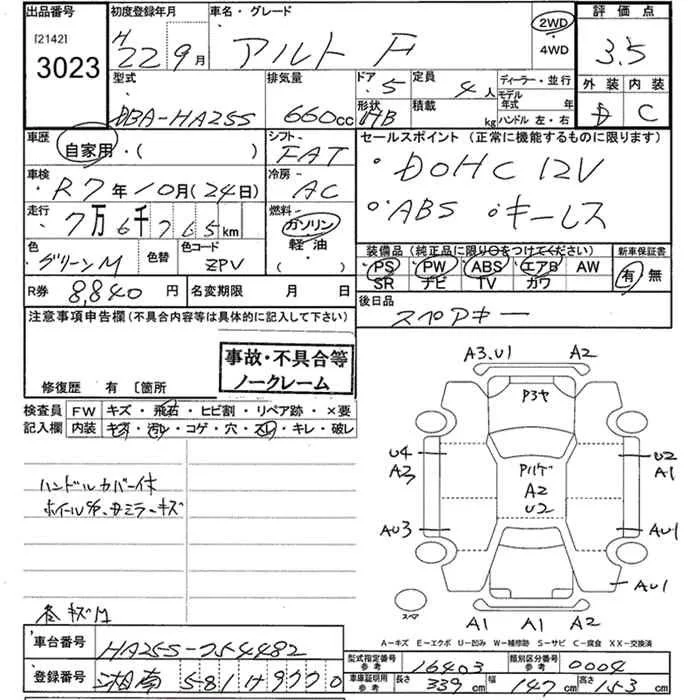 出品番号 初度登録年月 車名・グレード 評価点
[2142] 3023 H22 9月 アルト F 2WD ・4WD 3.5
外装 内装
型式 排気量 ドア 5 定員 4人 ディーラー・並行
DBA-HA25S 660cc 形状 HB 積載 kg モデル年式 年
ハンドル 左・右 D C
車歴 自家用・( ) シフト FAT セールスポイント (正常に機能するものに限ります)
車検 R7年10月(24日) 冷房 AC ・DOHC 12V
走行 7万6千765km 燃料 ガソリン・軽油・( ) ・ABS ・キーレス
色 グリーンM 色替 色コード ZPV 装備品(純正品に限り○をつけてください) 新車保証書
PS PW ABS エアB AW 有 無
SR ナビ TV カワ
R券 8,840円 名変期限 月 日 後日品
スペアキー
注意事項申告欄(不具合内容等は具体的に記入して下さい)
事故・不具合等
ノークレーム
修復歴 有 〔箇所
検査員 FW キズ・飛石・ヒビ割・リペア跡・×要
記入欄 内装 キズ・汚レ・コゲ・穴・スレ・キレ・破レ
ハンドルカバー付
ホイール
ミラーキズ
キズ
A3.U1 A2
P3ヤ
U4 A3
U2 A1
Pルーゲ A2 U2
AU3
AU1
AU1
スペア
A1 A1 A2
A−キズ E−エクボ U−凹み W−補修跡 S−サビ C−腐食 XX−交換済
車台番号 HA25S-754482
登録番号 湘南 581
型式指定番号 参考 16403 類別区分番号 参考 0004
車庫証明用 参考 長さ 339cm 幅 147cm 高さ 153cm